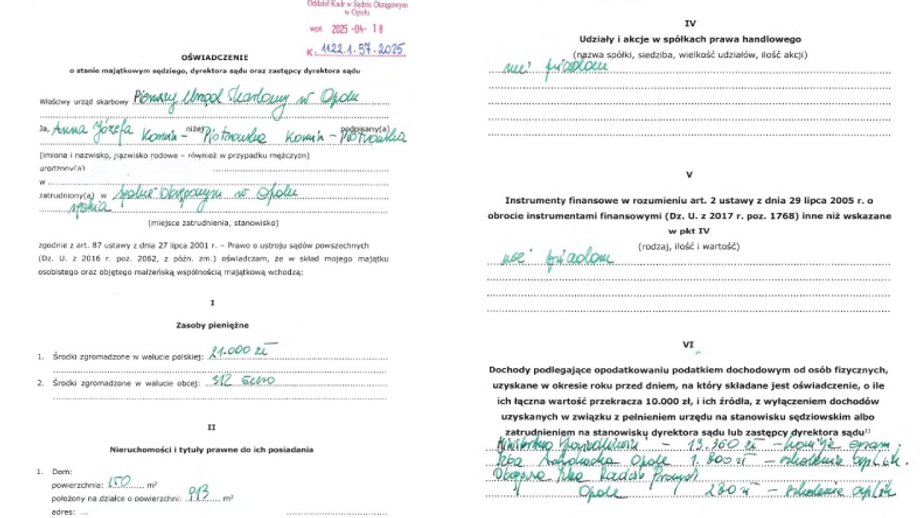 Oddział Kadr w Sądzie Okręgowym
w Opolu
wpł. 2025 -04- 18
K. 1122.1.57.2025
OŚWIADCZENIE
o stanie majątkowym sędziego, dyrektora sądu oraz zastępcy dyrektora sądu
Właściwy urząd skarbowy Pierwszy Urząd Skarbowy w Opolu
Ja, niżej podpisany(a) Anna Józefa Korwin-Piotrowska Korwin-Piotrowska
(imiona i nazwisko, nazwisko rodowe – również w przypadku mężczyzn)
urodzony(a)
w
zatrudniony(a) w Sądzie Okręgowym w Opolu
sędzia
(miejsce zatrudnienia, stanowisko)
zgodnie z art. 87 ustawy z dnia 27 lipca 2001 r. – Prawo o ustroju sądów powszechnych
(Dz. U. z 2016 r. poz. 2062, z późn. zm.) oświadczam, że w skład mojego majątku
osobistego oraz objętego małżeńską wspólnością majątkową wchodzą:
I
Zasoby pieniężne
1. Środki zgromadzone w walucie polskiej: 21.000 zł
2. Środki zgromadzone w walucie obcej: 312 Euro
II
Nieruchomości i tytuły prawne do ich posiadania
1. Dom:
powierzchnia: 150 m²
położony na działce o powierzchni: 913 m²
adres: ...
IV
Udziały i akcje w spółkach prawa handlowego
(nazwa spółki, siedziba, wielkość udziałów, ilość akcji)
nie posiadam
V
Instrumenty finansowe w rozumieniu art. 2 ustawy z dnia 29 lipca 2005 r. o
obrocie instrumentami finansowymi (Dz. U. z 2017 r. poz. 1768) inne niż wskazane
w pkt IV
(rodzaj, ilość i wartość)
nie posiadam
VI
Dochody podlegające opodatkowaniu podatkiem dochodowym od osób fizycznych,
uzyskane w okresie roku przed dniem, na który składane jest oświadczenie, o ile
ich łączna wartość przekracza 10.000 zł, i ich źródła, z wyłączeniem dochodów
uzyskanych w związku z pełnieniem urzędu na stanowisku sędziowskim albo
zatrudnieniem na stanowisku dyrektora sądu lub zastępcy dyrektora sądu¹⁾
Ministerstwo Sprawiedliwości - 13.360 zł - komisja egzam.
Izba Adwokacka Opole 1.800 zł - szkolenie aplik.
Okręgowa Izba Radców Prawnych
Opole 280 zł - szkolenie aplik